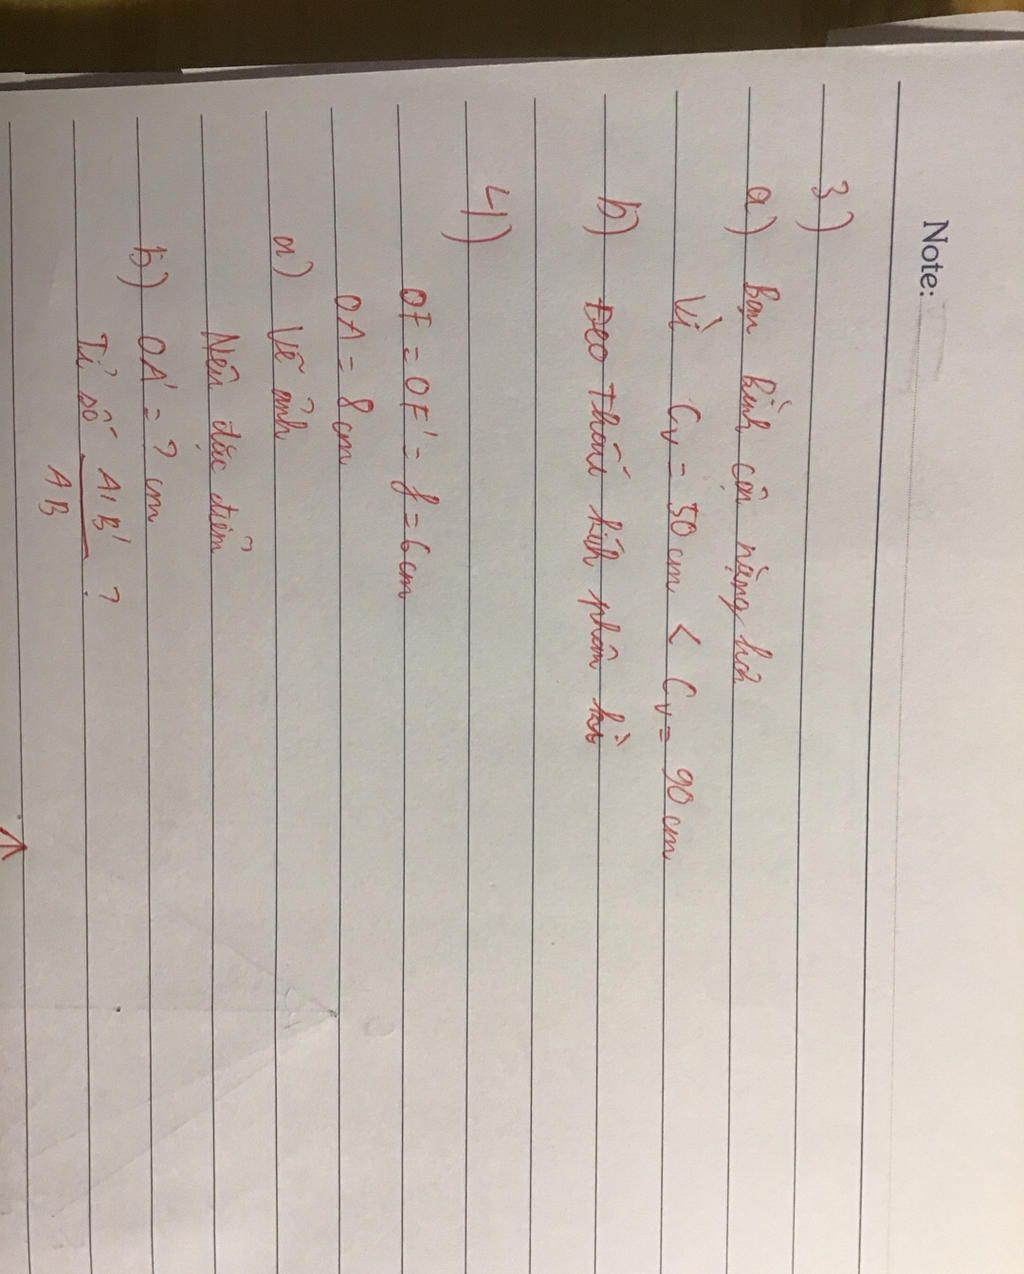 Note:
3)
a) Bạn bình cận nặng hơn
Vì Cv = 50 cm < Cv = 90 cm
b) Đeo thấu kính phân kì
4)
OF = OF' = f = 6 cm
OA = 8 cm
a) Vẽ ảnh
Nêu đặc điểm
b) OA' = ? cm
Tỉ số A'B' / AB ?